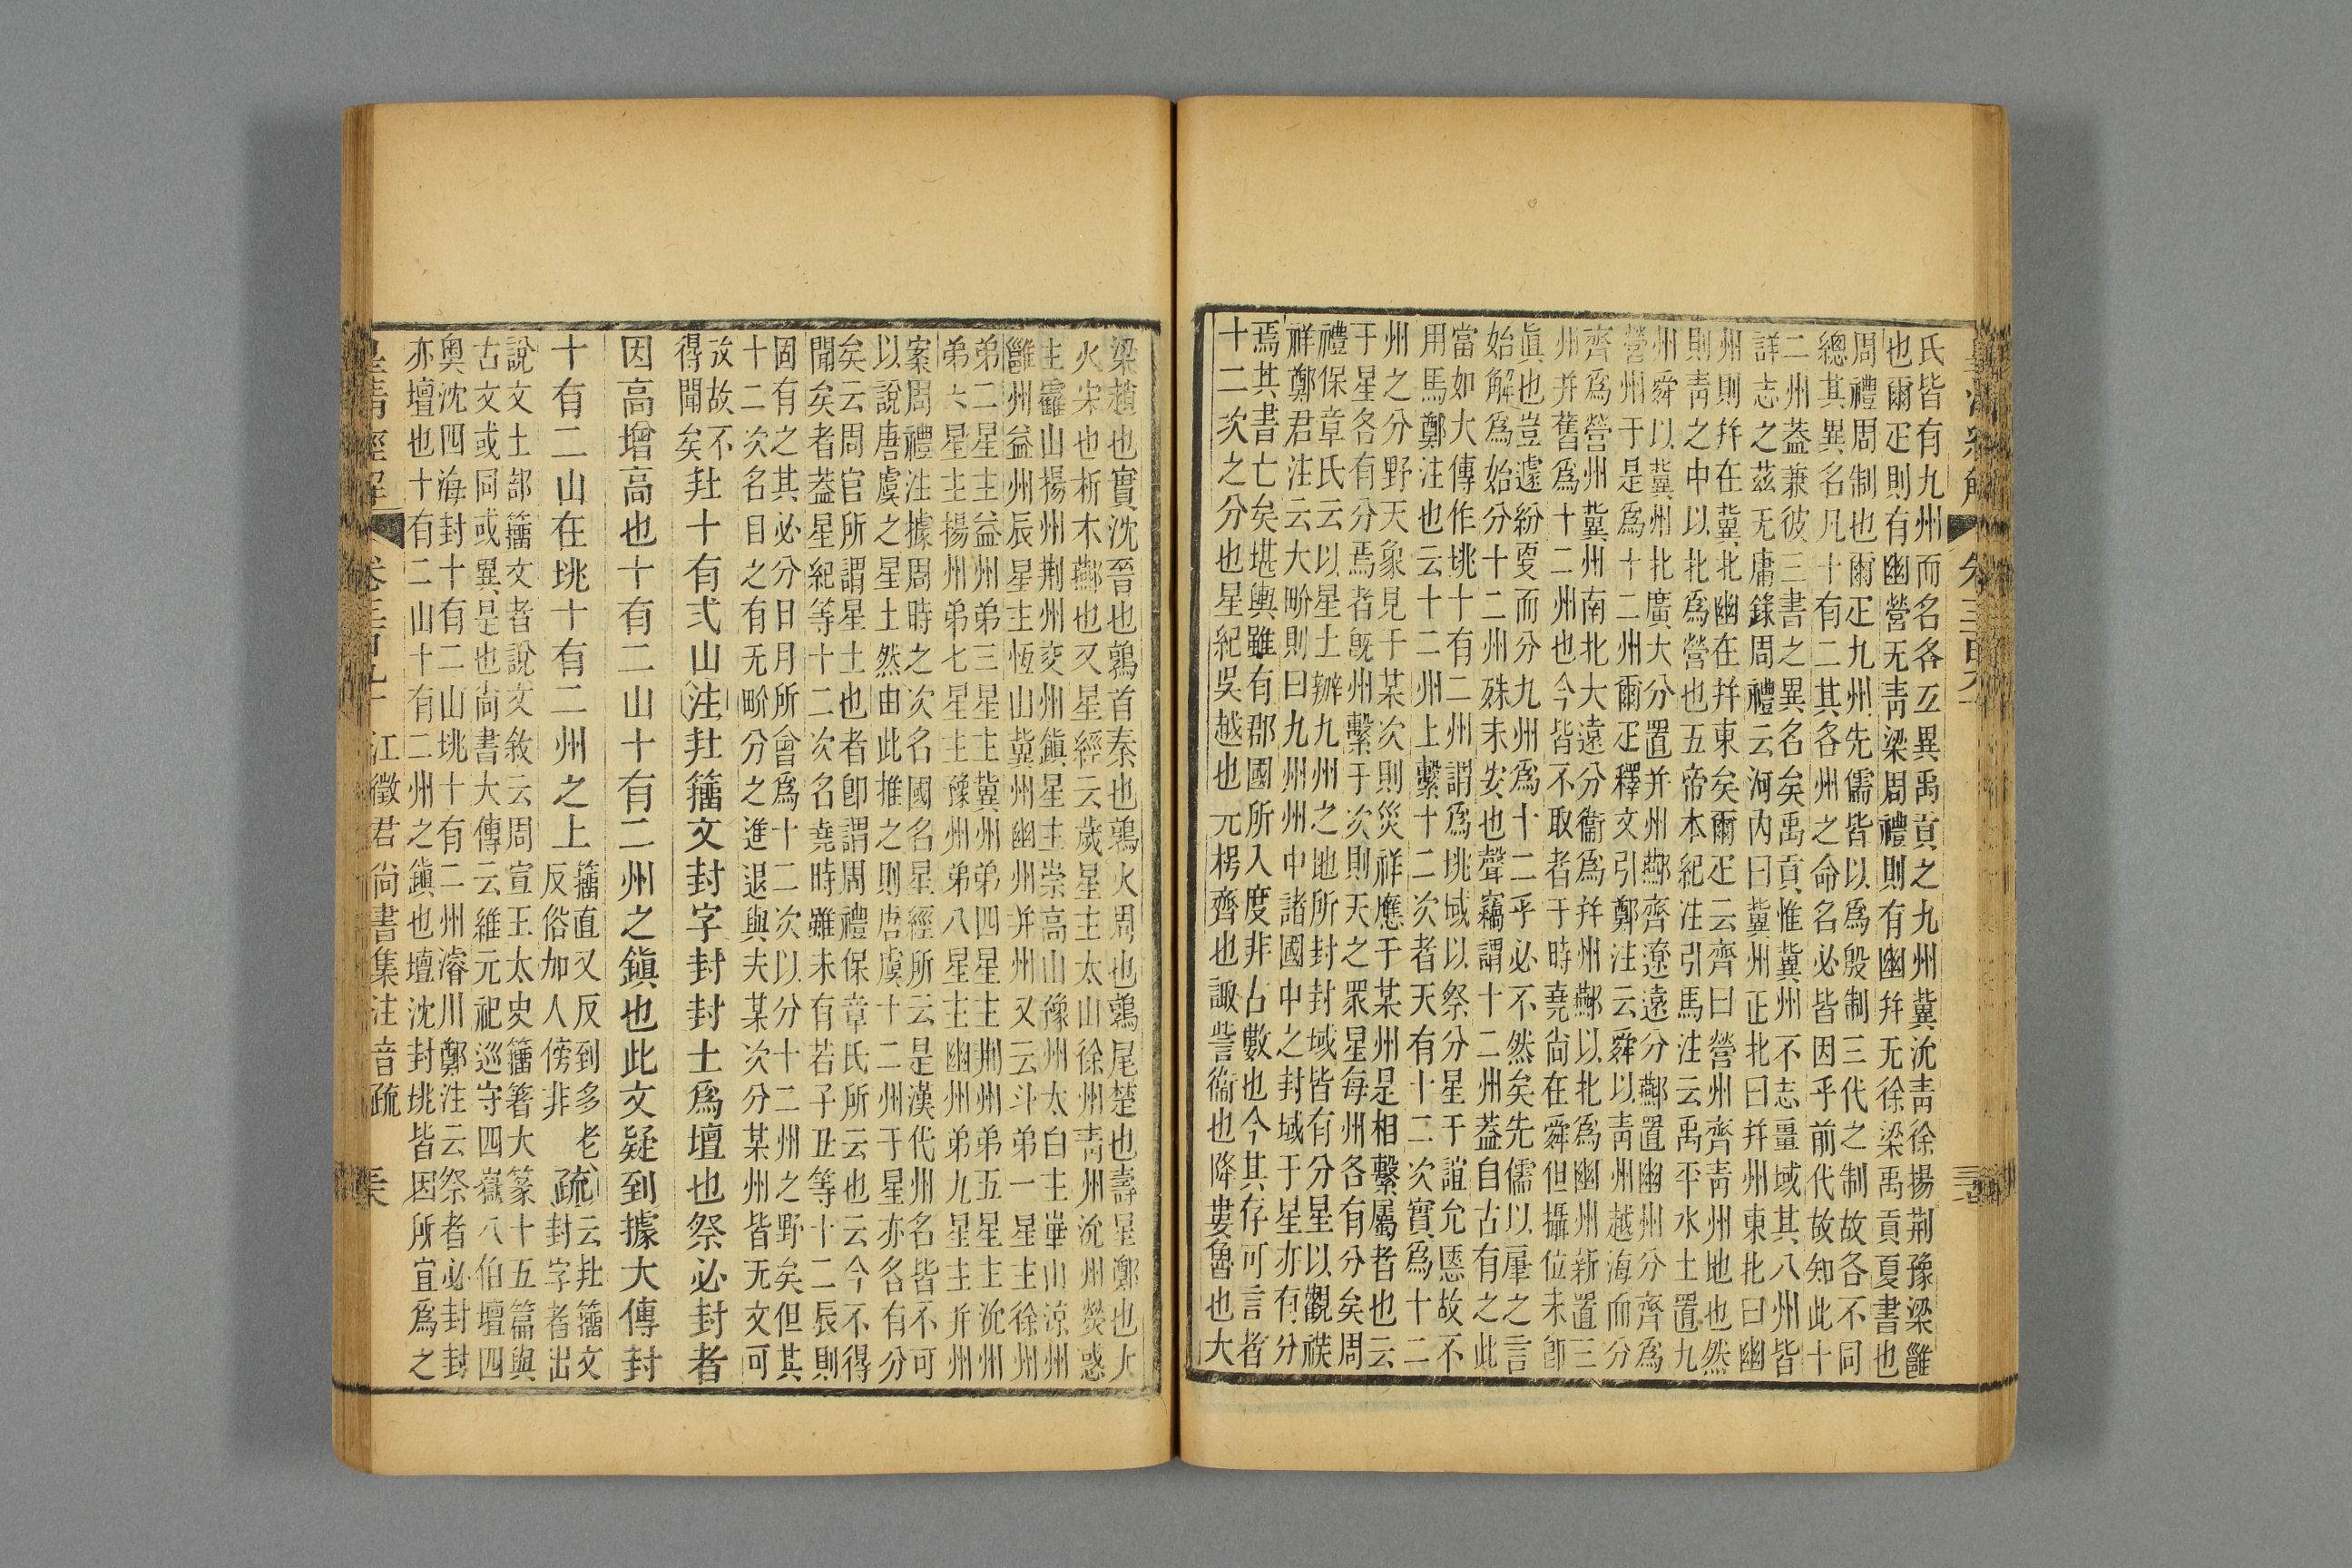 氏皆有九州而名各互異禹貢之九州冀沇青徐揚荆豫梁雝
也爾疋則有幽營无青梁周禮則有幽幷无徐梁禹貢夏書也
周禮周制也爾疋九州先儒皆以爲殷制三代之制故各不同
總其異名凡十有二其各州之命名必皆因乎前代故知此十
二州葢兼彼三書之異名矣禹貢惟冀州不志畺域其八州皆
詳志之茲无庸錄周禮云河內曰冀州正北曰幷州東北曰幽
州則幷在冀北幽在幷東矣爾疋云齊曰營州齊青州地也然
則青之中以北爲營也五帝本紀注引馬注云禹平水土置九
州舜以冀州北廣大分置并州鄿齊遼遠分鄿置幽州分齊爲
營州于是爲十二州爾疋釋文引鄭注云舜以青州越海而分
齊爲營州冀州南北大遠分衞爲幷州鄿以北爲幽州新置三
州并舊爲十二州也今皆不取者于時堯尙在舜但攝位未卽
眞也豈遽紛更而分九州爲十二乎必不然矣先儒以肇之言
始解爲始分十二州殊未安也聲竊謂十二州葢自古有之此
當如大傳作垗十有二州謂爲垗域以祭分星于誼允愜故不
用馬鄭注也云十二州上繫十二次者天有十二次實爲十二
州之分野天象見于某次則災祥應于某州是相繫屬者也云
于星各有分焉者旣州繫于次則天之眾星每州各有分矣周
禮保章氏云以星土辦九州之地所封封域皆有分星以觀祅
祥鄭君注云大畍則曰九州州中諸國中之封域于星亦有分
焉其書亡矣堪輿雖有郡國所入度非古數也今其存可言者
十二次之分也星紀吳越也元枵齊也諏訾衞也降婁魯也大
梁趙也實沈晉也鶉首秦也鶉火周也鶉尾楚也壽星鄭也大
火宋也析木鄿也又星經云歲星主太山徐州青州沇州熒惑
主霍山揚州荆州交州鎭星主崇高山豫州太白主崋山涼州
雝州益州辰星主恆山冀州幽州并州又云斗弟一星主徐州
弟二星主益州弟三星主冀州弟四星主荆州弟五星主沇州
弟六星主揚州弟七星主豫州弟八星主幽州弟九星主并州
案周禮注據周時之次名國名星經所云是漢代州名皆不可
以說唐虞之星土然由此推之則唐虞十二州于星亦各有分
矣云周官所謂星土也者卽謂周禮保章氏所云也云今不得
聞矣者葢星紀等十二次名堯時雖未有若子丑等十二辰則
固有之其必分日月所會爲十二次以分十二州之野矣但其
十二次名目之有无畍分之進退與夫某次分某州皆无文可
攷故不
得聞矣
㘳十有弍山注㘳籒文封字封封土爲壇也祭必封者
因高增高也十有二山十有二州之鎭也此文疑到據大傳封
十有二山在垗十有二州之上籒直又反到多老
反俗加人傍非疏云㘳籒文
封字者出
說文土部籒文者說文敘云周宣王太史籒箸大篆十五篇與
古文或同或異是也尙書大傳云維元祀巡守四嶽八伯壇四
奧沈四海封十有二山垗十有二州濬川鄭注云祭者必封封
亦壇也十有二山十有二州之鎭也壇沈封垗皆因所宜爲之
江徵君尙書集注音疏